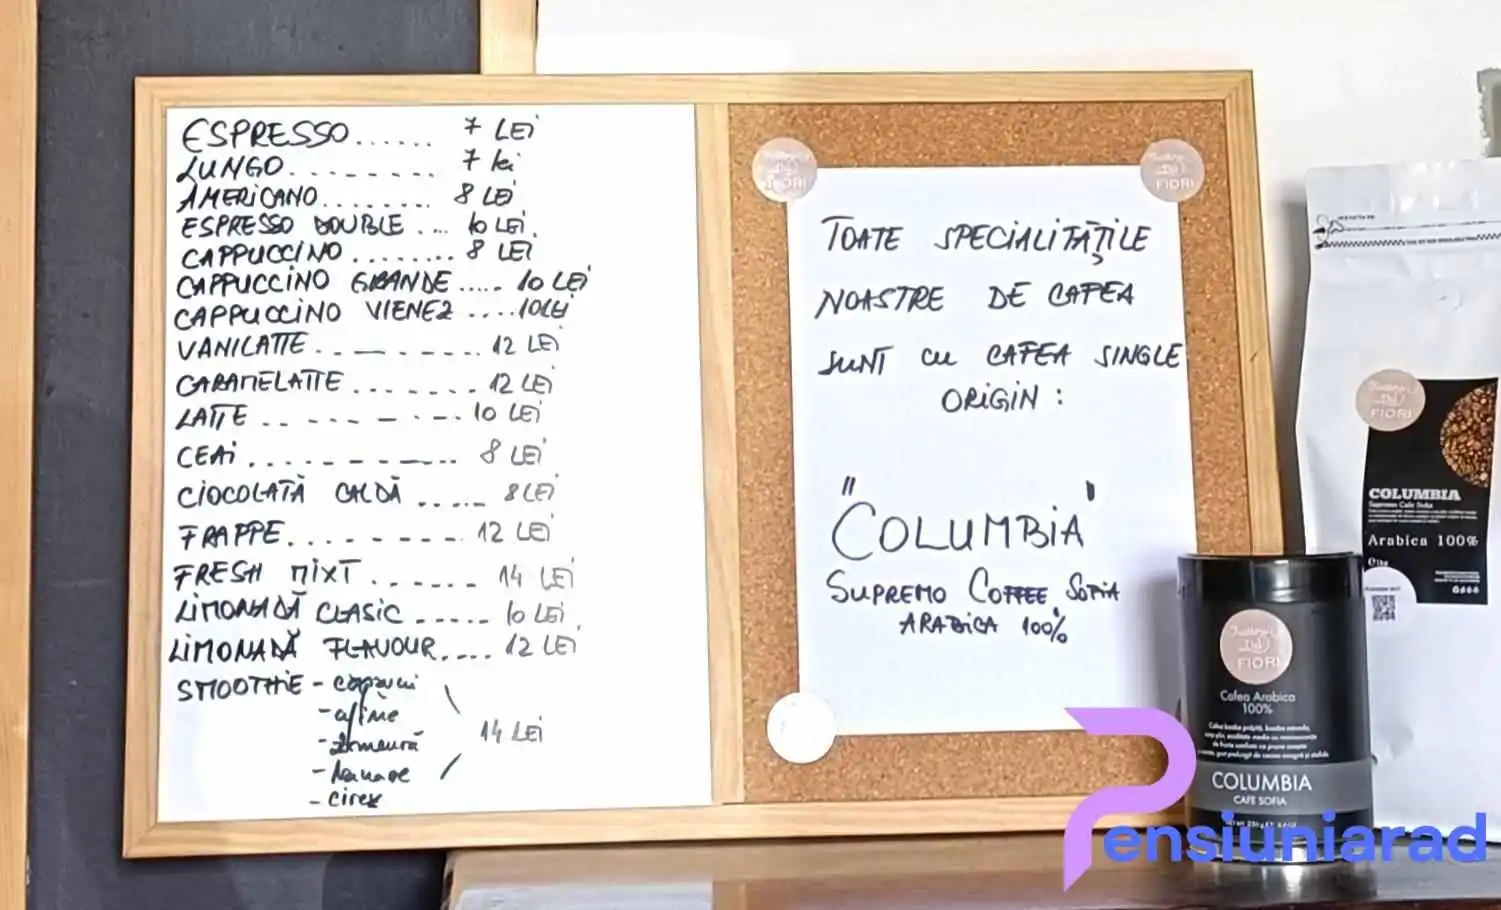 ESPRESSO...... 7 LEi
LUNGO.......... 7 lei
AMERiCANO........ 8 LEi
ESPRESSO DOUBLE .... 10 LEi.
CAPPUCCiNO ........ 8 LEi
CAPPUCCiNO GRANDE ..... 10 LEi
CAPPUCCiNO VIENEZ .....10LEi
VANiLATTE.......... 12 LEi
CARAMELATTE ....... 12 LEi
LATTE .......... 10 LEi
CEAi .......... 8 LEi
CiOCOLATĂ CALDĂ ...... 8 LEi
FRAPPE.......... 12 LEi
FRESH MiXT ....... 14 LEi
LiMONADĂ CLASiC ...... 10 LEi.
LiMONADĂ FLAVOUR..... 12 LEi
SMOOTHiE - căpșuni
- afine
- zmeură
- banane
- cireșe
14 LEi
TOATE SPECIALITĂȚILE
NOASTRE DE CAFEA
SUNT CU CAFEA SINGLE
ORiGiN :
"COLUMBiA"
SUPREMO COFFEE SOFiA
ARABiCA 100%
FIORI
FIORI
FIORI
COLUMBIA
Supremo Cafe Sofia
Arabica 100%
FIORI
Cafea Arabica
100%
COLUMBIA
CAFE SOFIA
Pensiuniarad